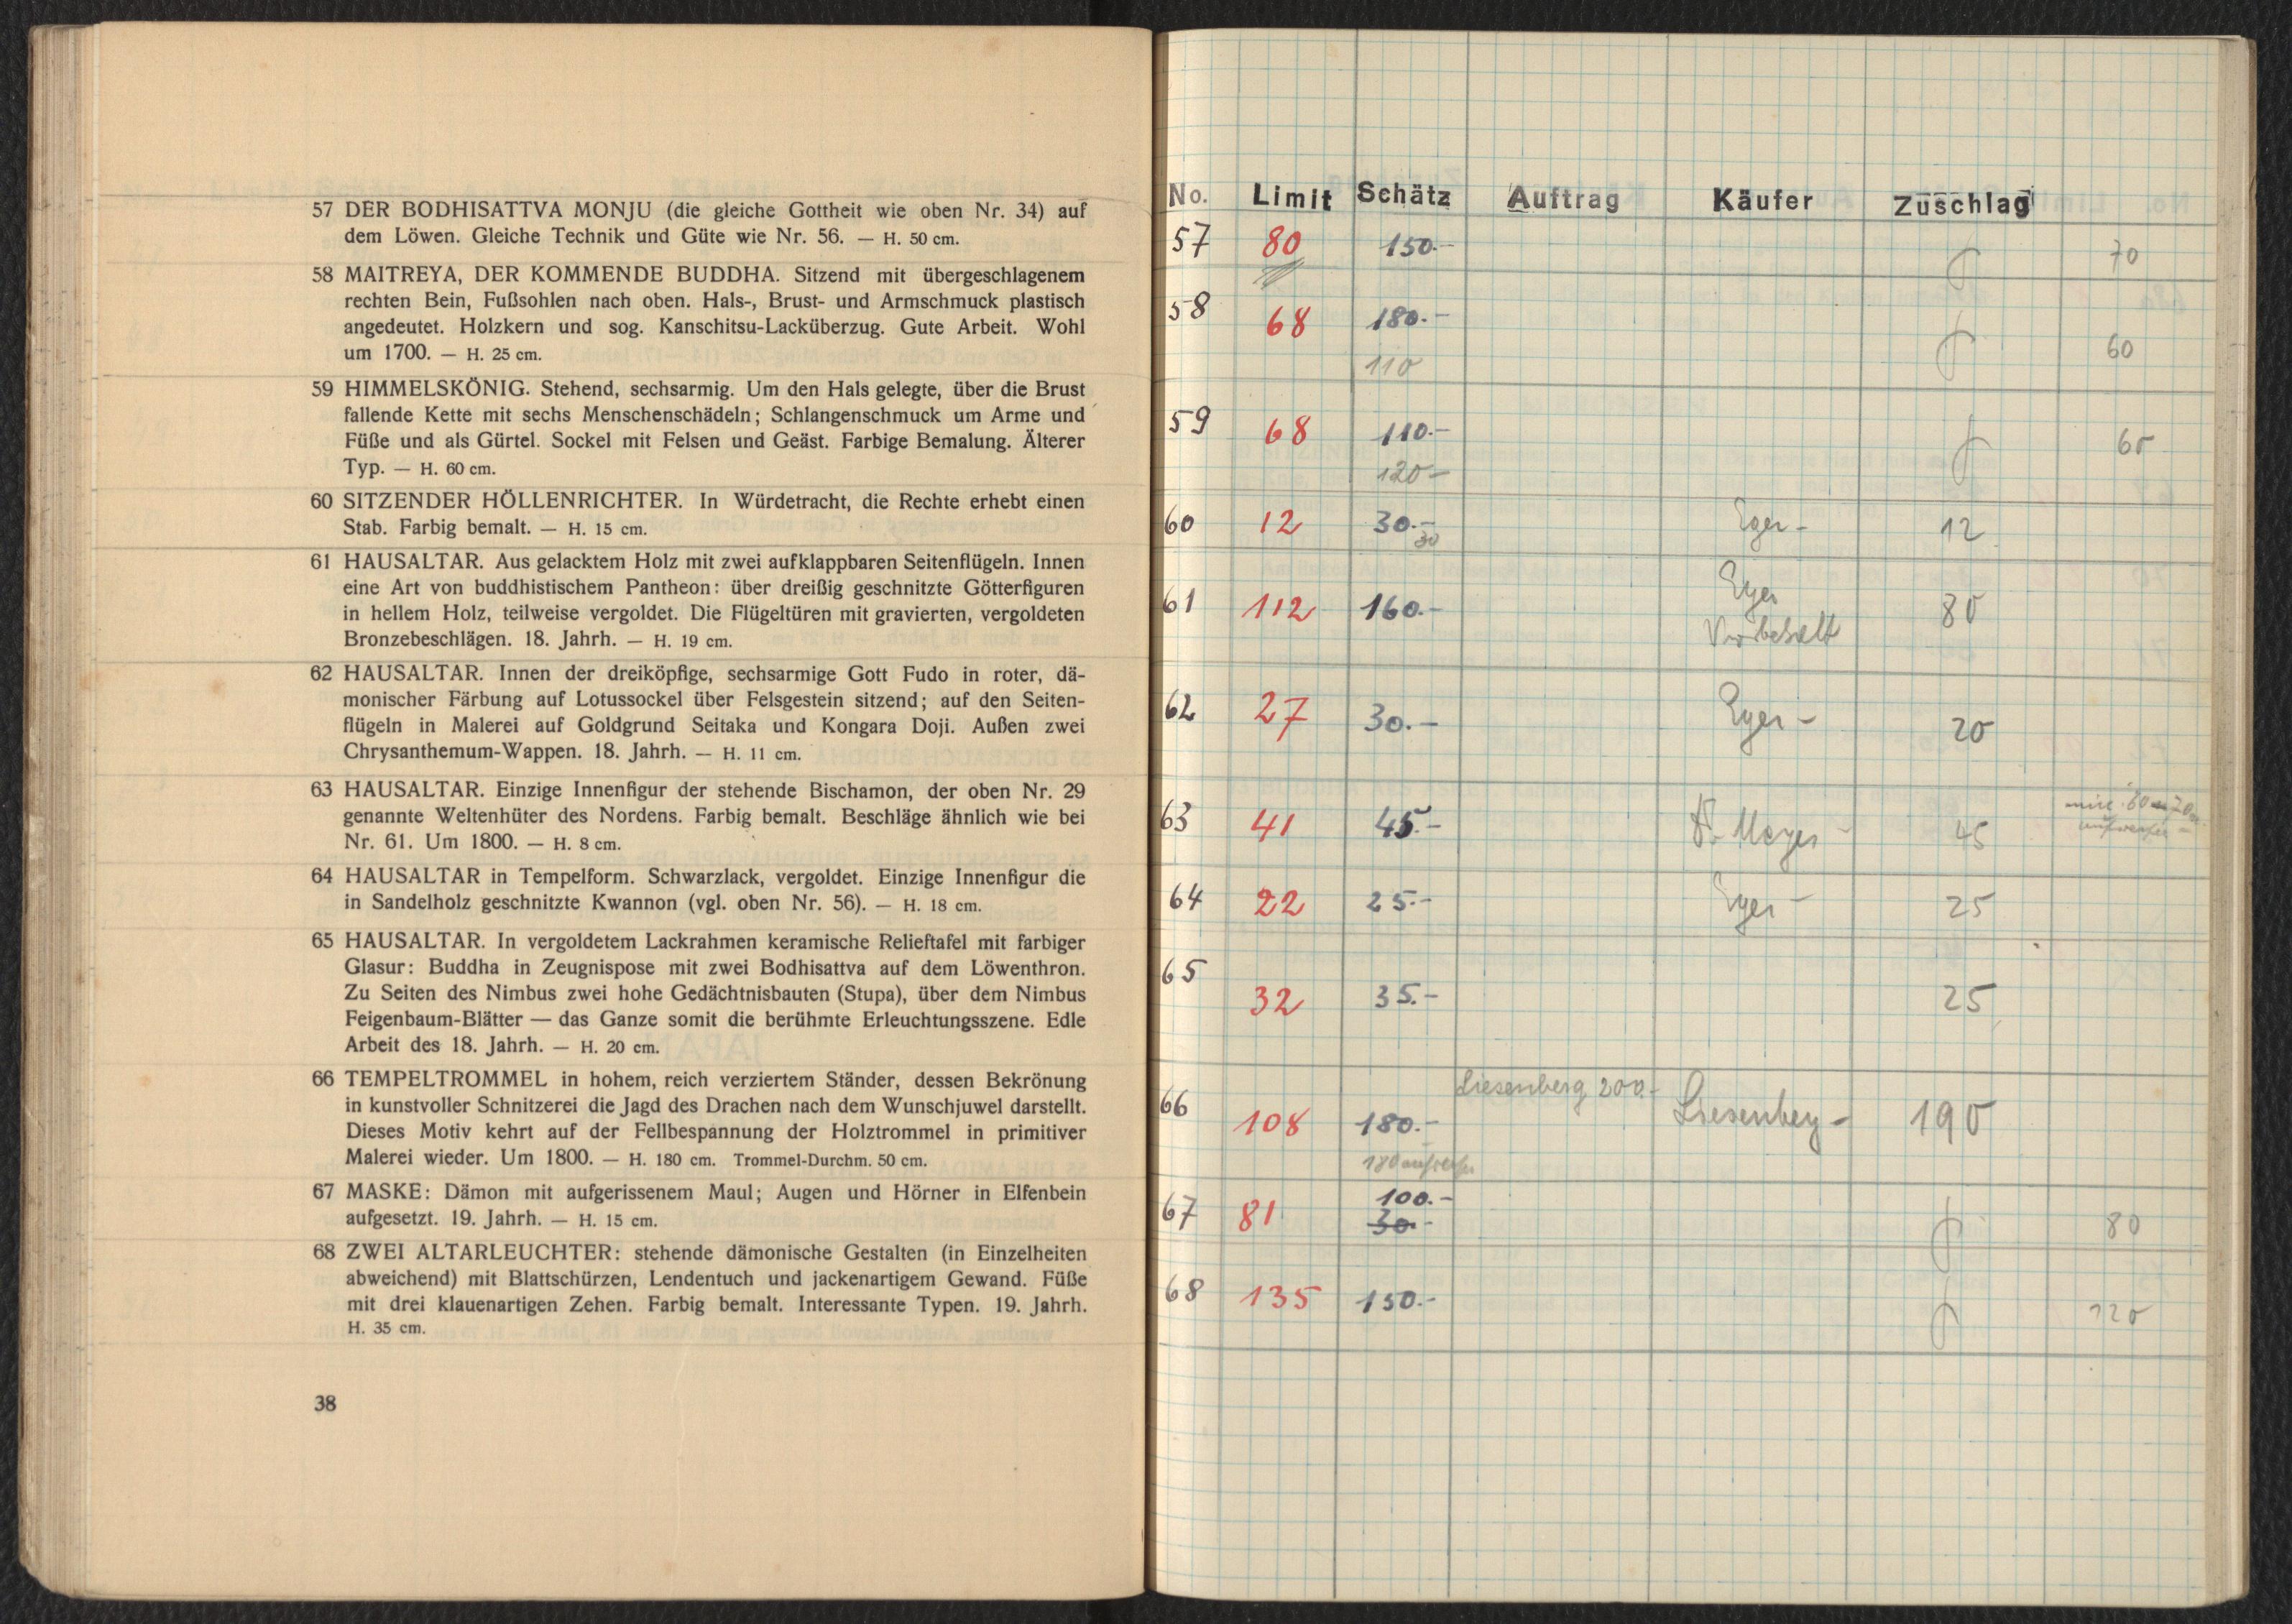 57 DER BODHISATTVA MONJU (die gleiche Gottheit wie oben Nr. 34) auf
dem Löwen. Gleiche Technik und Güte wie Nr. 56. — H. 50 cm.
58 MAITREYA, DER KOMMENDE BUDDHA. Sitzend mit übergeschlagenem
rechten Bein, Fußsohlen nach oben. Hals-, Brust- und Armschmuck plastisch
angedeutet. Holzkern und sog. Kanschitsu-Lacküberzug. Gute Arbeit. Wohl
um 1700. — H. 25 cm.
59 HIMMELSKÖNIG. Stehend, sechsarmig. Um den Hals gelegte, über die Brust
fallende Kette mit sechs Menschenschädeln; Schlangenschmuck um Arme und
Füße und als Gürtel. Sockel mit Felsen und Geäst. Farbige Bemalung. Älterer
Typ. — H. 60 cm.
60 SITZENDER HÖLLENRICHTER. In Würdetracht, die Rechte erhebt einen
Stab. Farbig bemalt. — H. 15 cm.
61 HAUSALTAR. Aus gelacktem Holz mit zwei aufklappbaren Seitenflügeln. Innen
eine Art von buddhistischem Pantheon: über dreißig geschnitzte Götterfiguren
in hellem Holz, teilweise vergoldet. Die Flügeltüren mit gravierten, vergoldeten
Bronzebeschlägen. 18. Jahrh. — H. 19 cm.
62 HAUSALTAR. Innen der dreiköpfige, sechsarmige Gott Fudo in roter, dä-
monischer Färbung auf Lotussockel über Felsgestein sitzend; auf den Seiten-
flügeln in Malerei auf Goldgrund Seitaka und Kongara Doji. Außen zwei
Chrysanthemum-Wappen. 18. Jahrh. — H. 11 cm.
63 HAUSALTAR. Einzige Innenfigur der stehende Bischamon, der oben Nr. 29
genannte Weltenhüter des Nordens. Farbig bemalt. Beschläge ähnlich wie bei
Nr. 61. Um 1800. — H. 8 cm.
64 HAUSALTAR in Tempelform. Schwarzlack, vergoldet. Einzige Innenfigur die
in Sandelholz geschnitzte Kwannon (vgl. oben Nr. 56). — H. 18 cm.
65 HAUSALTAR. In vergoldetem Lackrahmen keramische Relieftafel mit farbiger
Glasur: Buddha in Zeugnispose mit zwei Bodhisattva auf dem Löwenthron.
Zu Seiten des Nimbus zwei hohe Gedächtnisbauten (Stupa), über dem Nimbus
Feigenbaum-Blätter — das Ganze somit die berühmte Erleuchtungsszene. Edle
Arbeit des 18. Jahrh. — H. 20 cm.
66 TEMPELTROMMEL in hohem, reich verziertem Ständer, dessen Bekrönung
in kunstvoller Schnitzerei die Jagd des Drachen nach dem Wunschjuwel darstellt.
Dieses Motiv kehrt auf der Fellbespannung der Holztrommel in primitiver
Malerei wieder. Um 1800. — H. 180 cm. Trommel-Durchm. 50 cm.
67 MASKE: Dämon mit aufgerissenem Maul; Augen und Hörner in Elfenbein
aufgesetzt. 19. Jahrh. — H. 15 cm.
68 ZWEI ALTARLEUCHTER: stehende dämonische Gestalten (in Einzelheiten
abweichend) mit Blattschürzen, Lendentuch und jackenartigem Gewand. Füße
mit drei klauenartigen Zehen. Farbig bemalt. Interessante Typen. 19. Jahrh.
H. 35 cm.
38
No. Limit Schätz Auftrag Käufer Zuschlag
57 80 150.- 70
58 68 180.- 60
110
59 68 110.- 65
120-
60 12 30.- Eger - 12
30
61 112 160.- Eger 80
Vorbehalt
62 27 30.- Eger - 20
63 41 45.- Dr. Meyer - 45
64 22 25.- Eger - 25
65 32 35.- 25
Liesenberg 200.-
66 108 180.- Liesenberg - 190
180 aufrufen
100.-
67 81 30.- 80
68 135 150.- 120